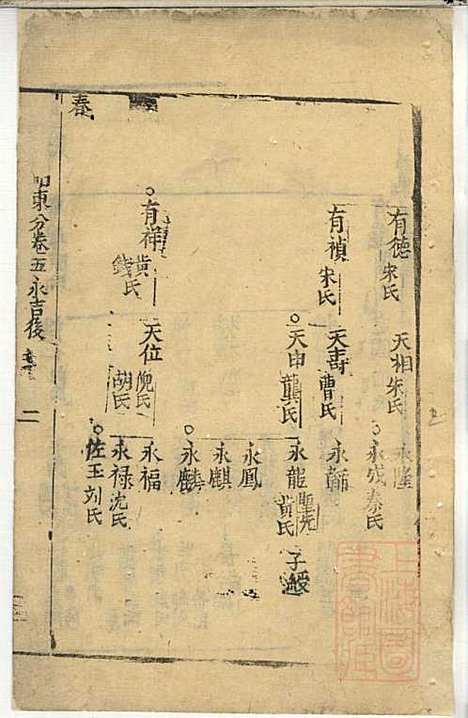 春
有德 朱氏
天相 朱氏
永隆
永成 秦氏
有禎 朱氏
天壽 曹氏
永
天申 龔氏
永龍 黃氏
子
永鳳
永麒
永麟
有祥 黃氏 錢氏
天位 倪氏 胡氏
永福
永禄 沈氏
佐王 刘氏
東分卷五永吉後
二